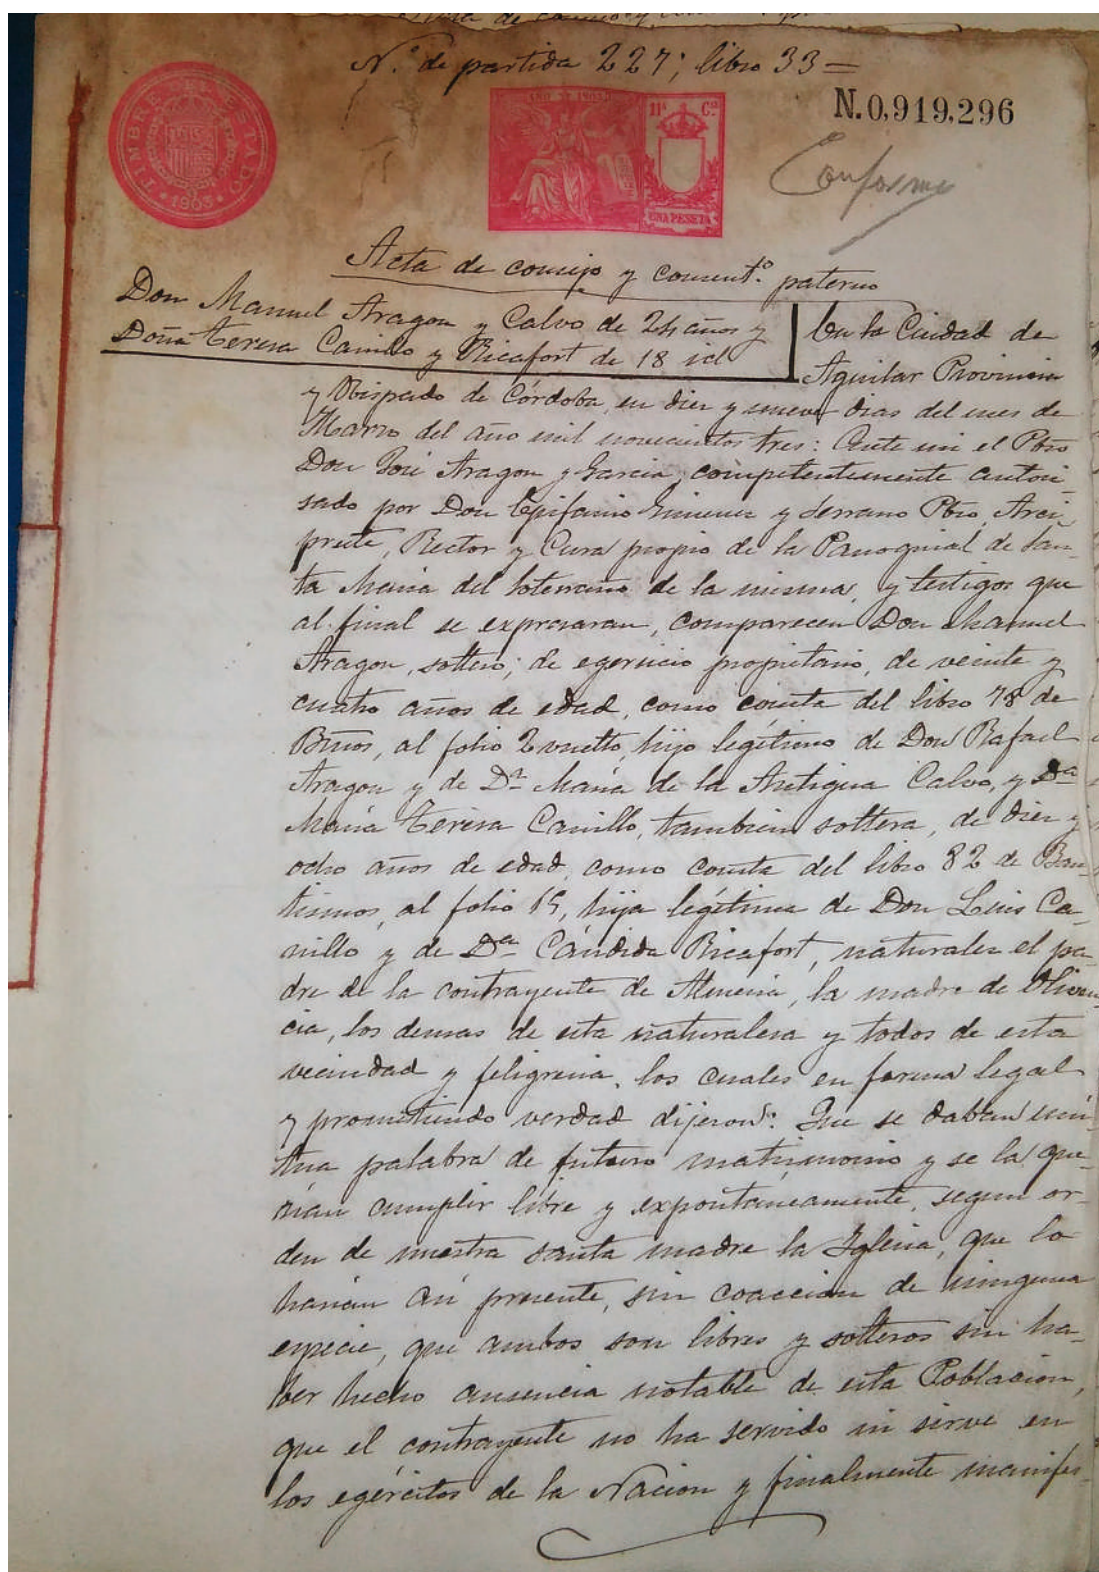 Nº de partida 227; libro 33=
TIMBRE DEL ESTADO
1903
11ª Cª
UNA PESETA
N.0,919,296
Conforme
Acta de consejo y consentº paterno
Don Manuel Aragon y Calvo de 24 años y
Doña Teresa Carrillo y Ricafort de 18 id
En la Ciudad de
Aguilar Provincia
y Obispado de Córdoba, en diez y nueve dias del mes de
Marzo del año mil novecientos tres: Ante mi el Pbro
Don José Aragon y Garcia, competentemente autori-
sado por Don Epifanio Gimenez y Serrano Pbro, Arci-
preste, Rector y Cura propio de la Parroquial de San-
ta Maria del Soterraño de la misma, y testigos que
al final se expresaran, comparecen Don Manuel
Aragon, soltero, de egersicio propietario, de veinte y
cuatro años de edad, como consta del libro 78 de
Bmos, al folio 2 vuelto, hijo legítimo de Don Rafael
Aragon y de Dª Maria de la Antigua Calvo, y Dª
Maria Teresa Carrillo, tambien soltera, de diez y
ocho años de edad, como consta del libro 82 de Bau-
tismos, al folio 15, hija legítima de Don Luis Ca-
rrillo y de Dª Cándida Ricafort, naturales el pa-
dre de la contrayente de Almeria, la madre de Oliven-
cia, los demas de esta naturalesa y todos de esta
vecindad y feligresia, los cuales en forma legal
y prometiendo verdad dijeron: Que se daban mú-
tua palabra de futuro matrimonio y se la que-
rian cumplir libre y expontáneamente, segun or-
den de nuestra santa madre la Iglesia, que lo
harian asi presente, sin coaccion de ninguna
especie, que ambos son libres y solteros sin ha-
ber hecho ausencia notable de esta Poblacion,
que el contrayente no ha servido ni sirve en
los egércitos de la Nacion y finalmente manifes-